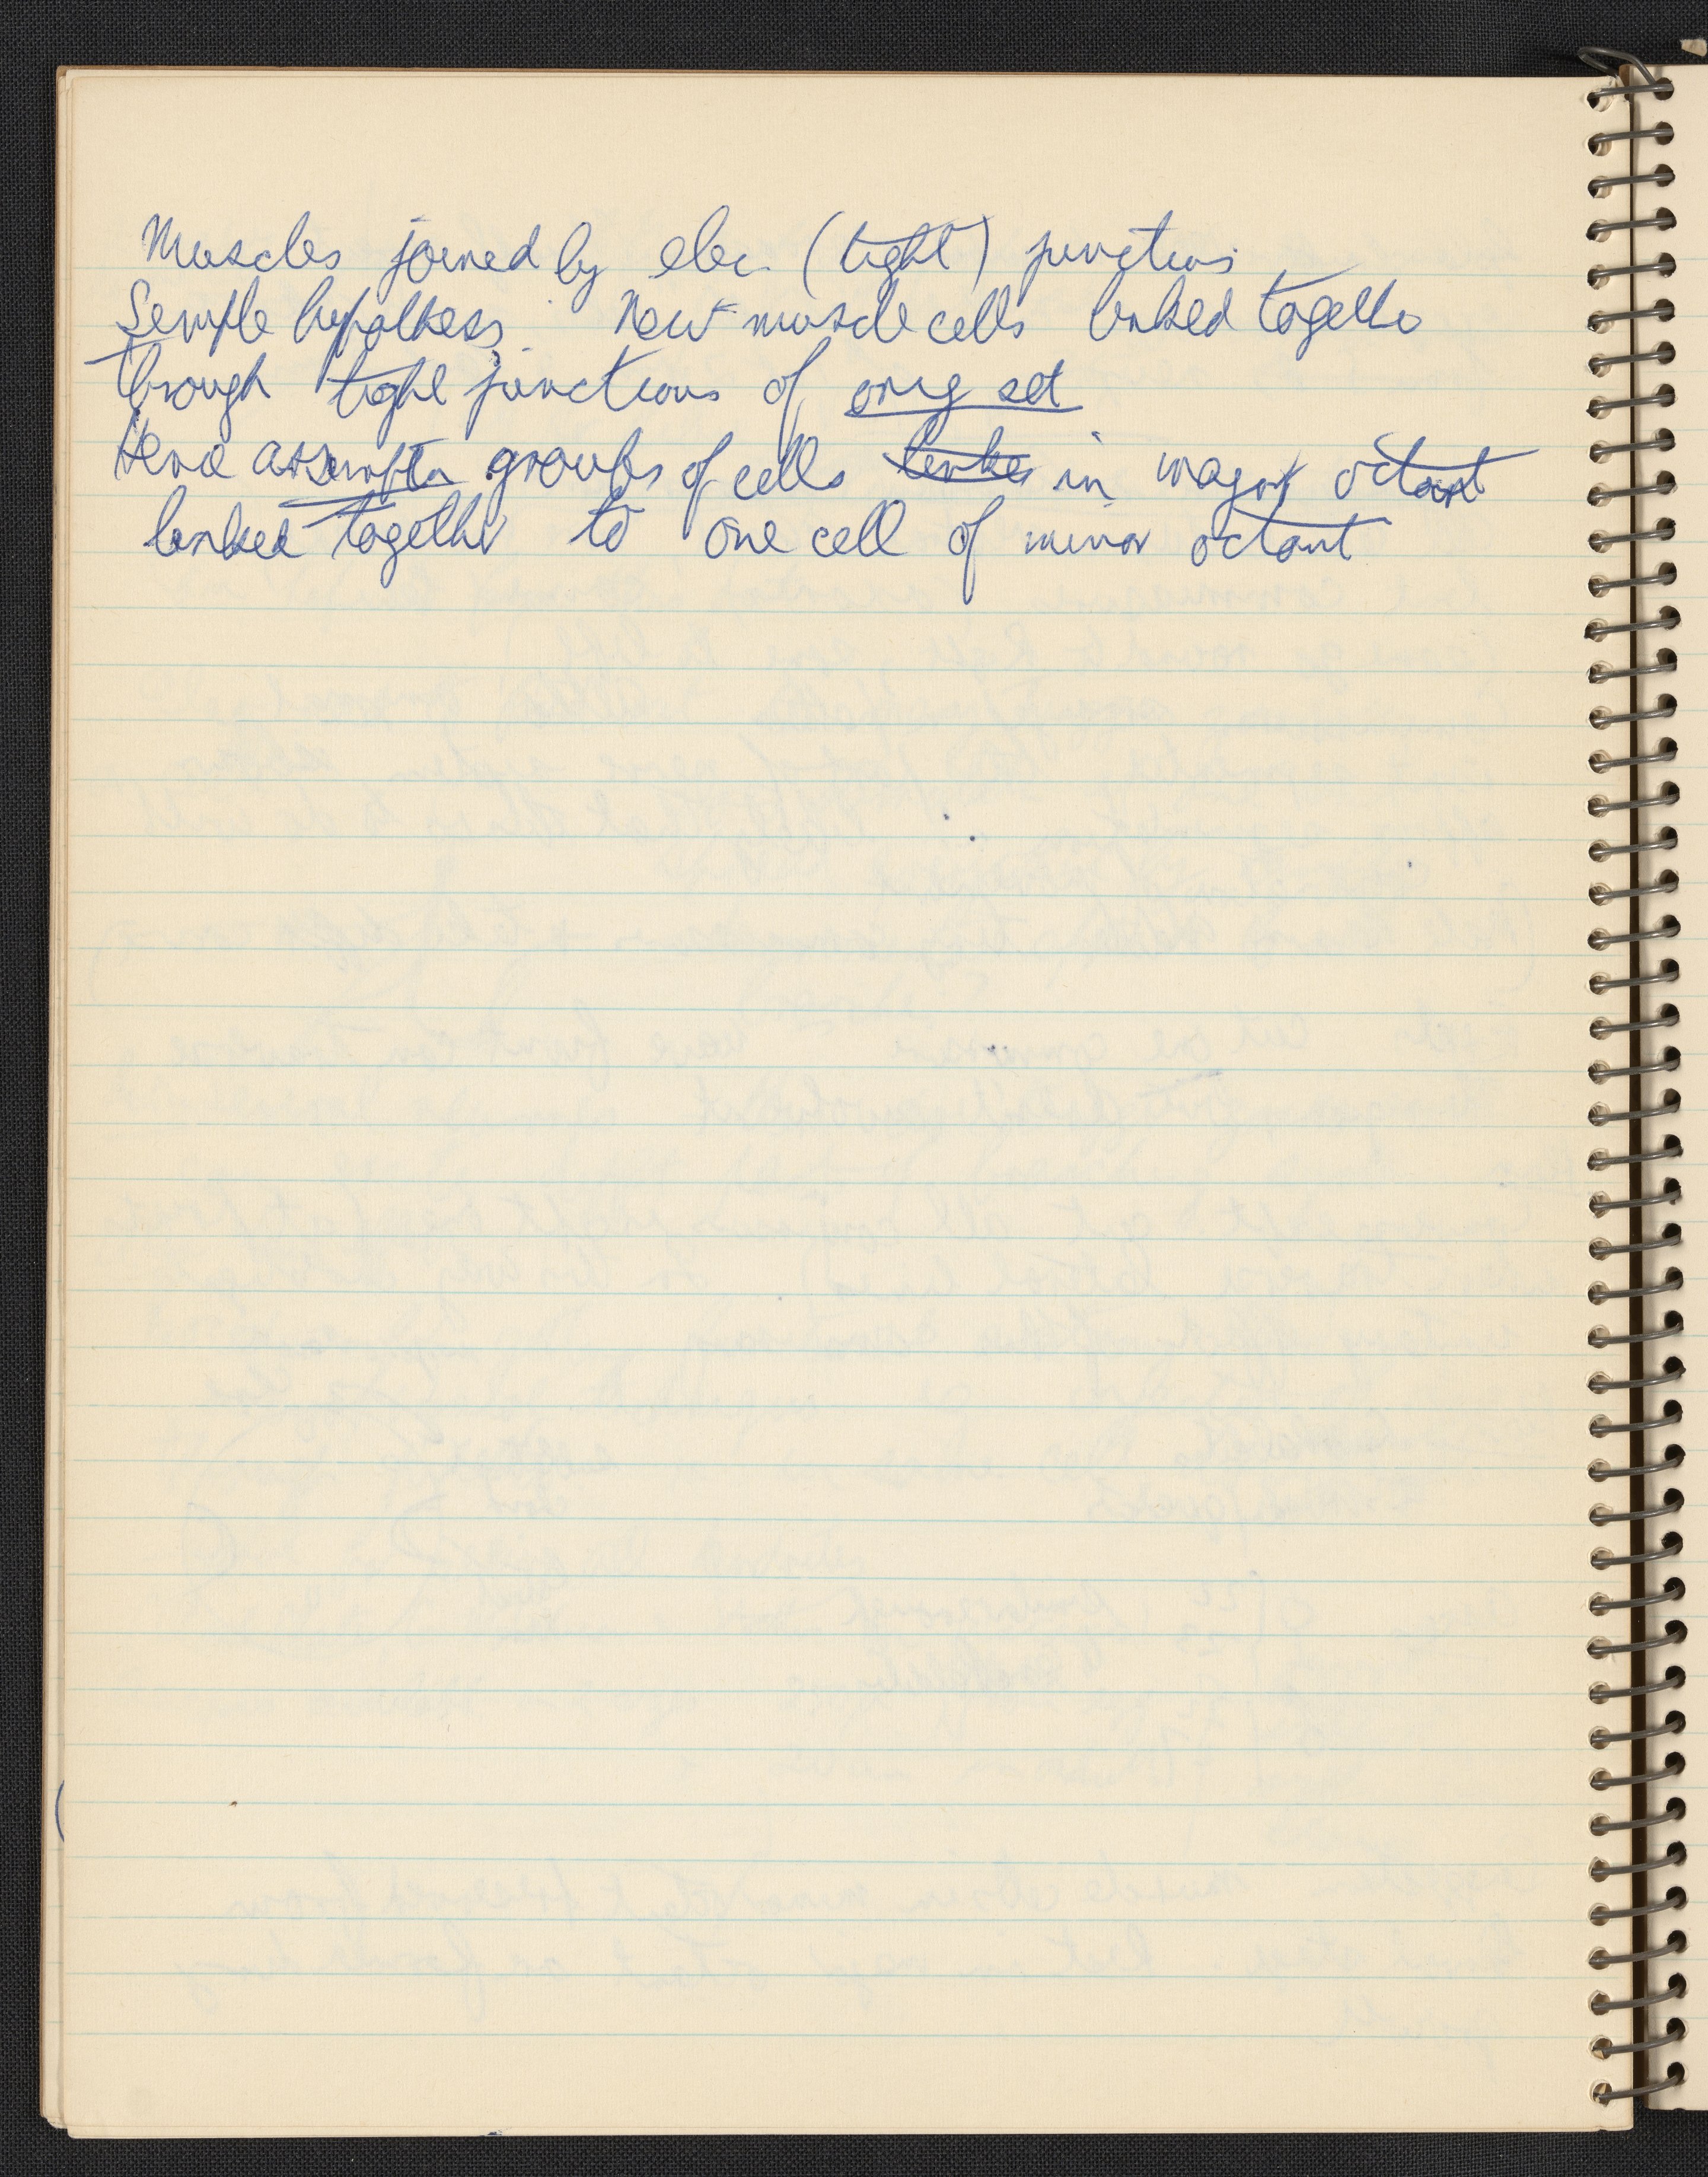 Muscles joined by elec. (tight) junctions
Simple hypothesis. New muscle cells linked together
through tight junctions of orig set
Hence assumptn groups of cells linke in major octant
linked together to one cell of minor octant